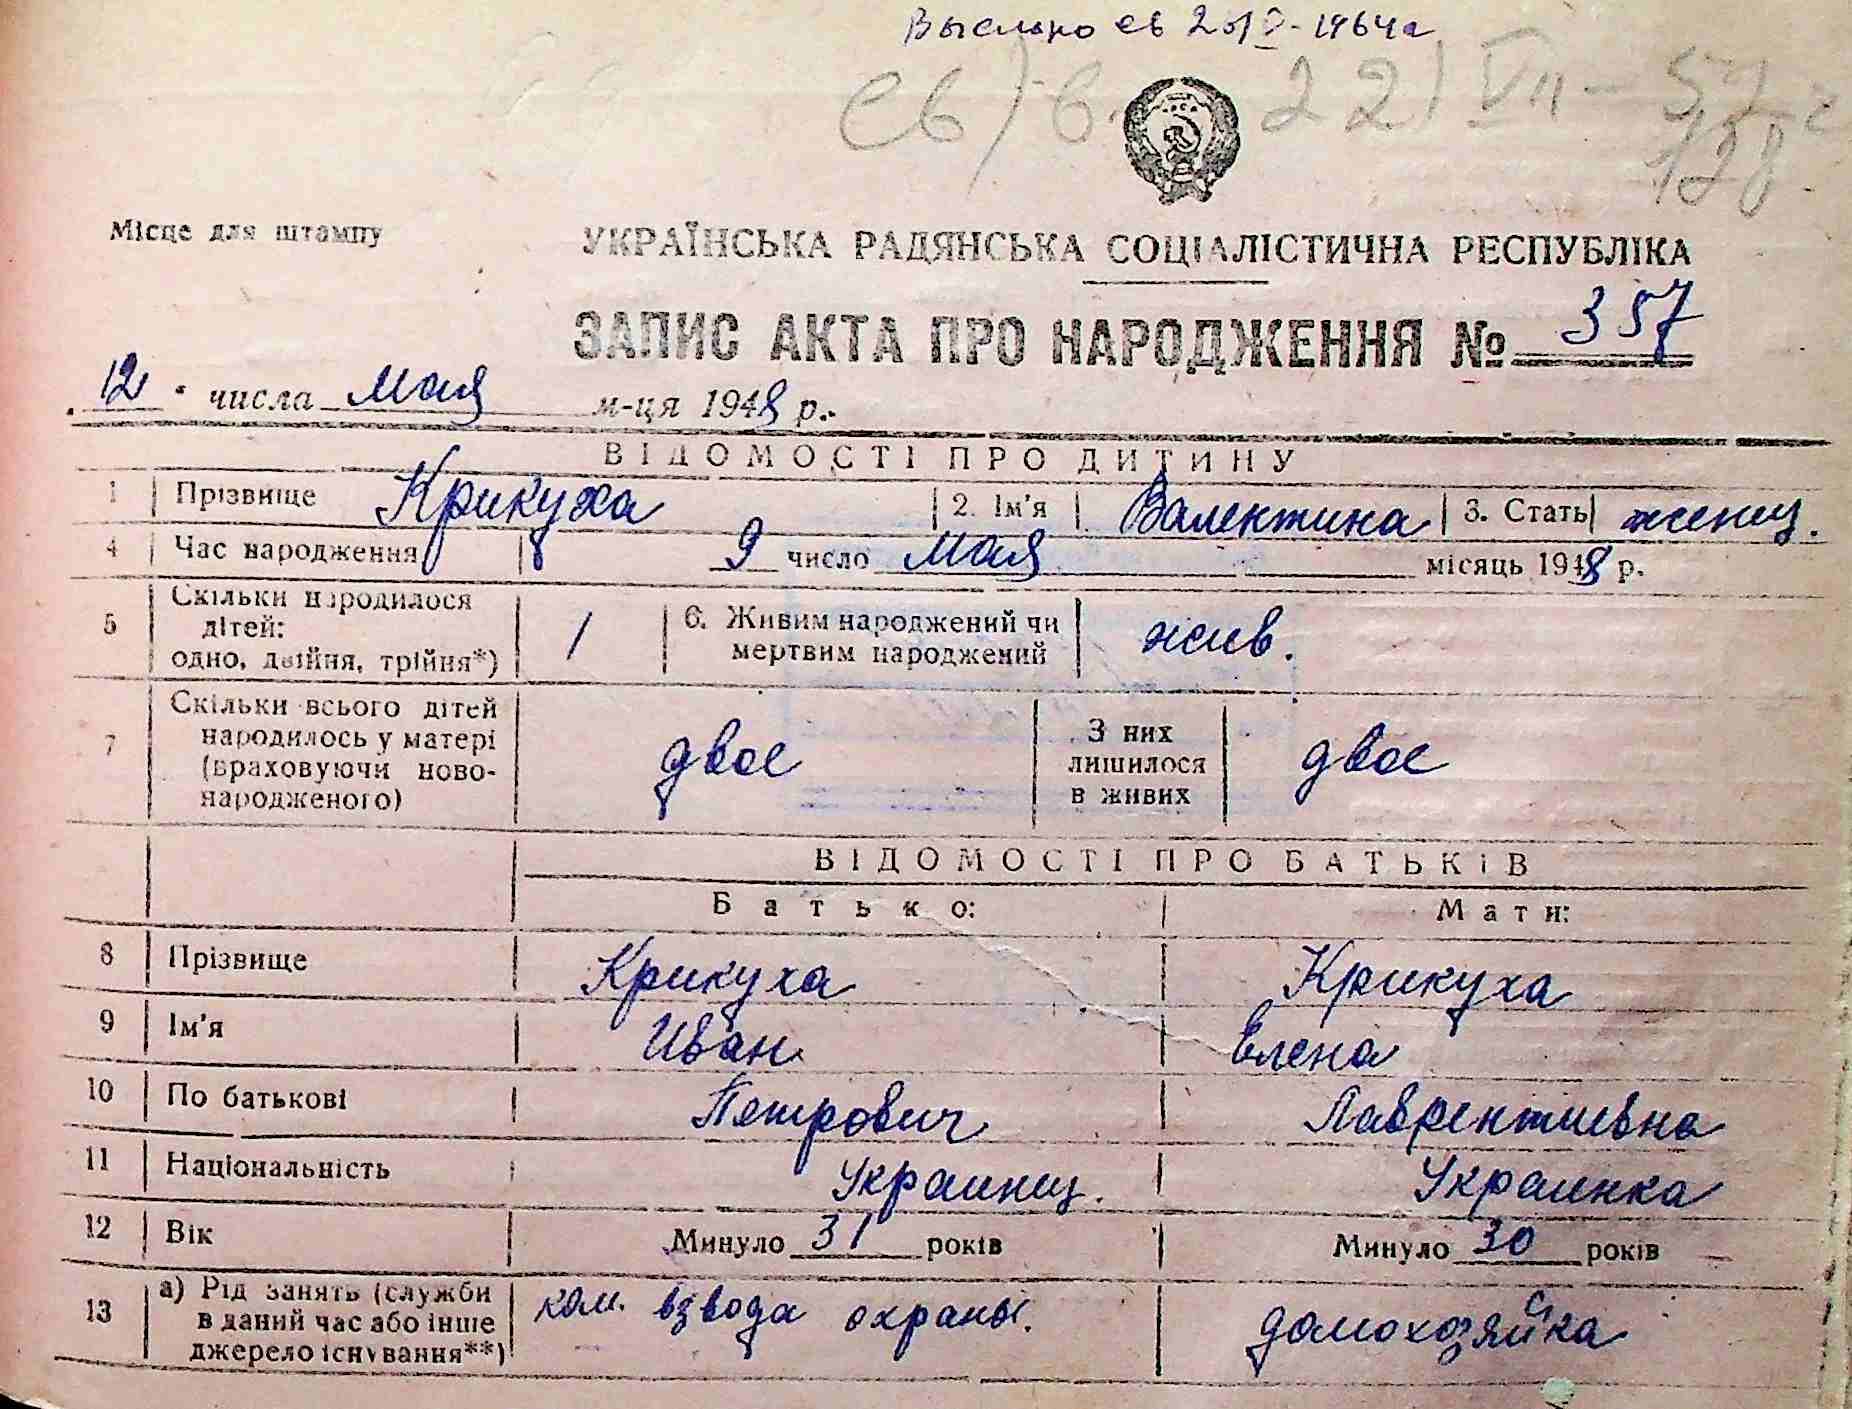 Выслано св 1964г
св 22/VII - 57 г
128
Місце для штампу
УКРАЇНСЬКА РАДЯНСЬКА СОЦІАЛІСТИЧНА РЕСПУБЛІКА
ЗАПИС АКТА ПРО НАРОДЖЕННЯ № 357
12 числа мая м-ця 1948 р.
ВІДОМОСТІ ПРО ДИТИНУ
1 Прізвище Крикуха 2. Ім'я Валентина 3. Стать женщ.
4 Час народження 9 число мая місяць 1948 р.
Скільки народилося
5 дітей: 1 6. Живим народжений чи жив.
одно, двійня, трійня*) мертвим народжений
Скільки всього дітей
7 народилось у матері двое З них двое
(враховуючи ново- лишилося
народженого) в живих
ВІДОМОСТІ ПРО БАТЬКІВ
Батько: Мати:
8 Прізвище Крикуха Крикуха
9 Ім'я Иван Елена
10 По батькові Петрович Лаврентиевна
11 Національність Украинец. Украинка
12 Вік Минуло 31 років Минуло 30 років
а) Рід занять (служби ком. взвода охраны.
13 в даний час або інше домохозяйка
джерело існування**)